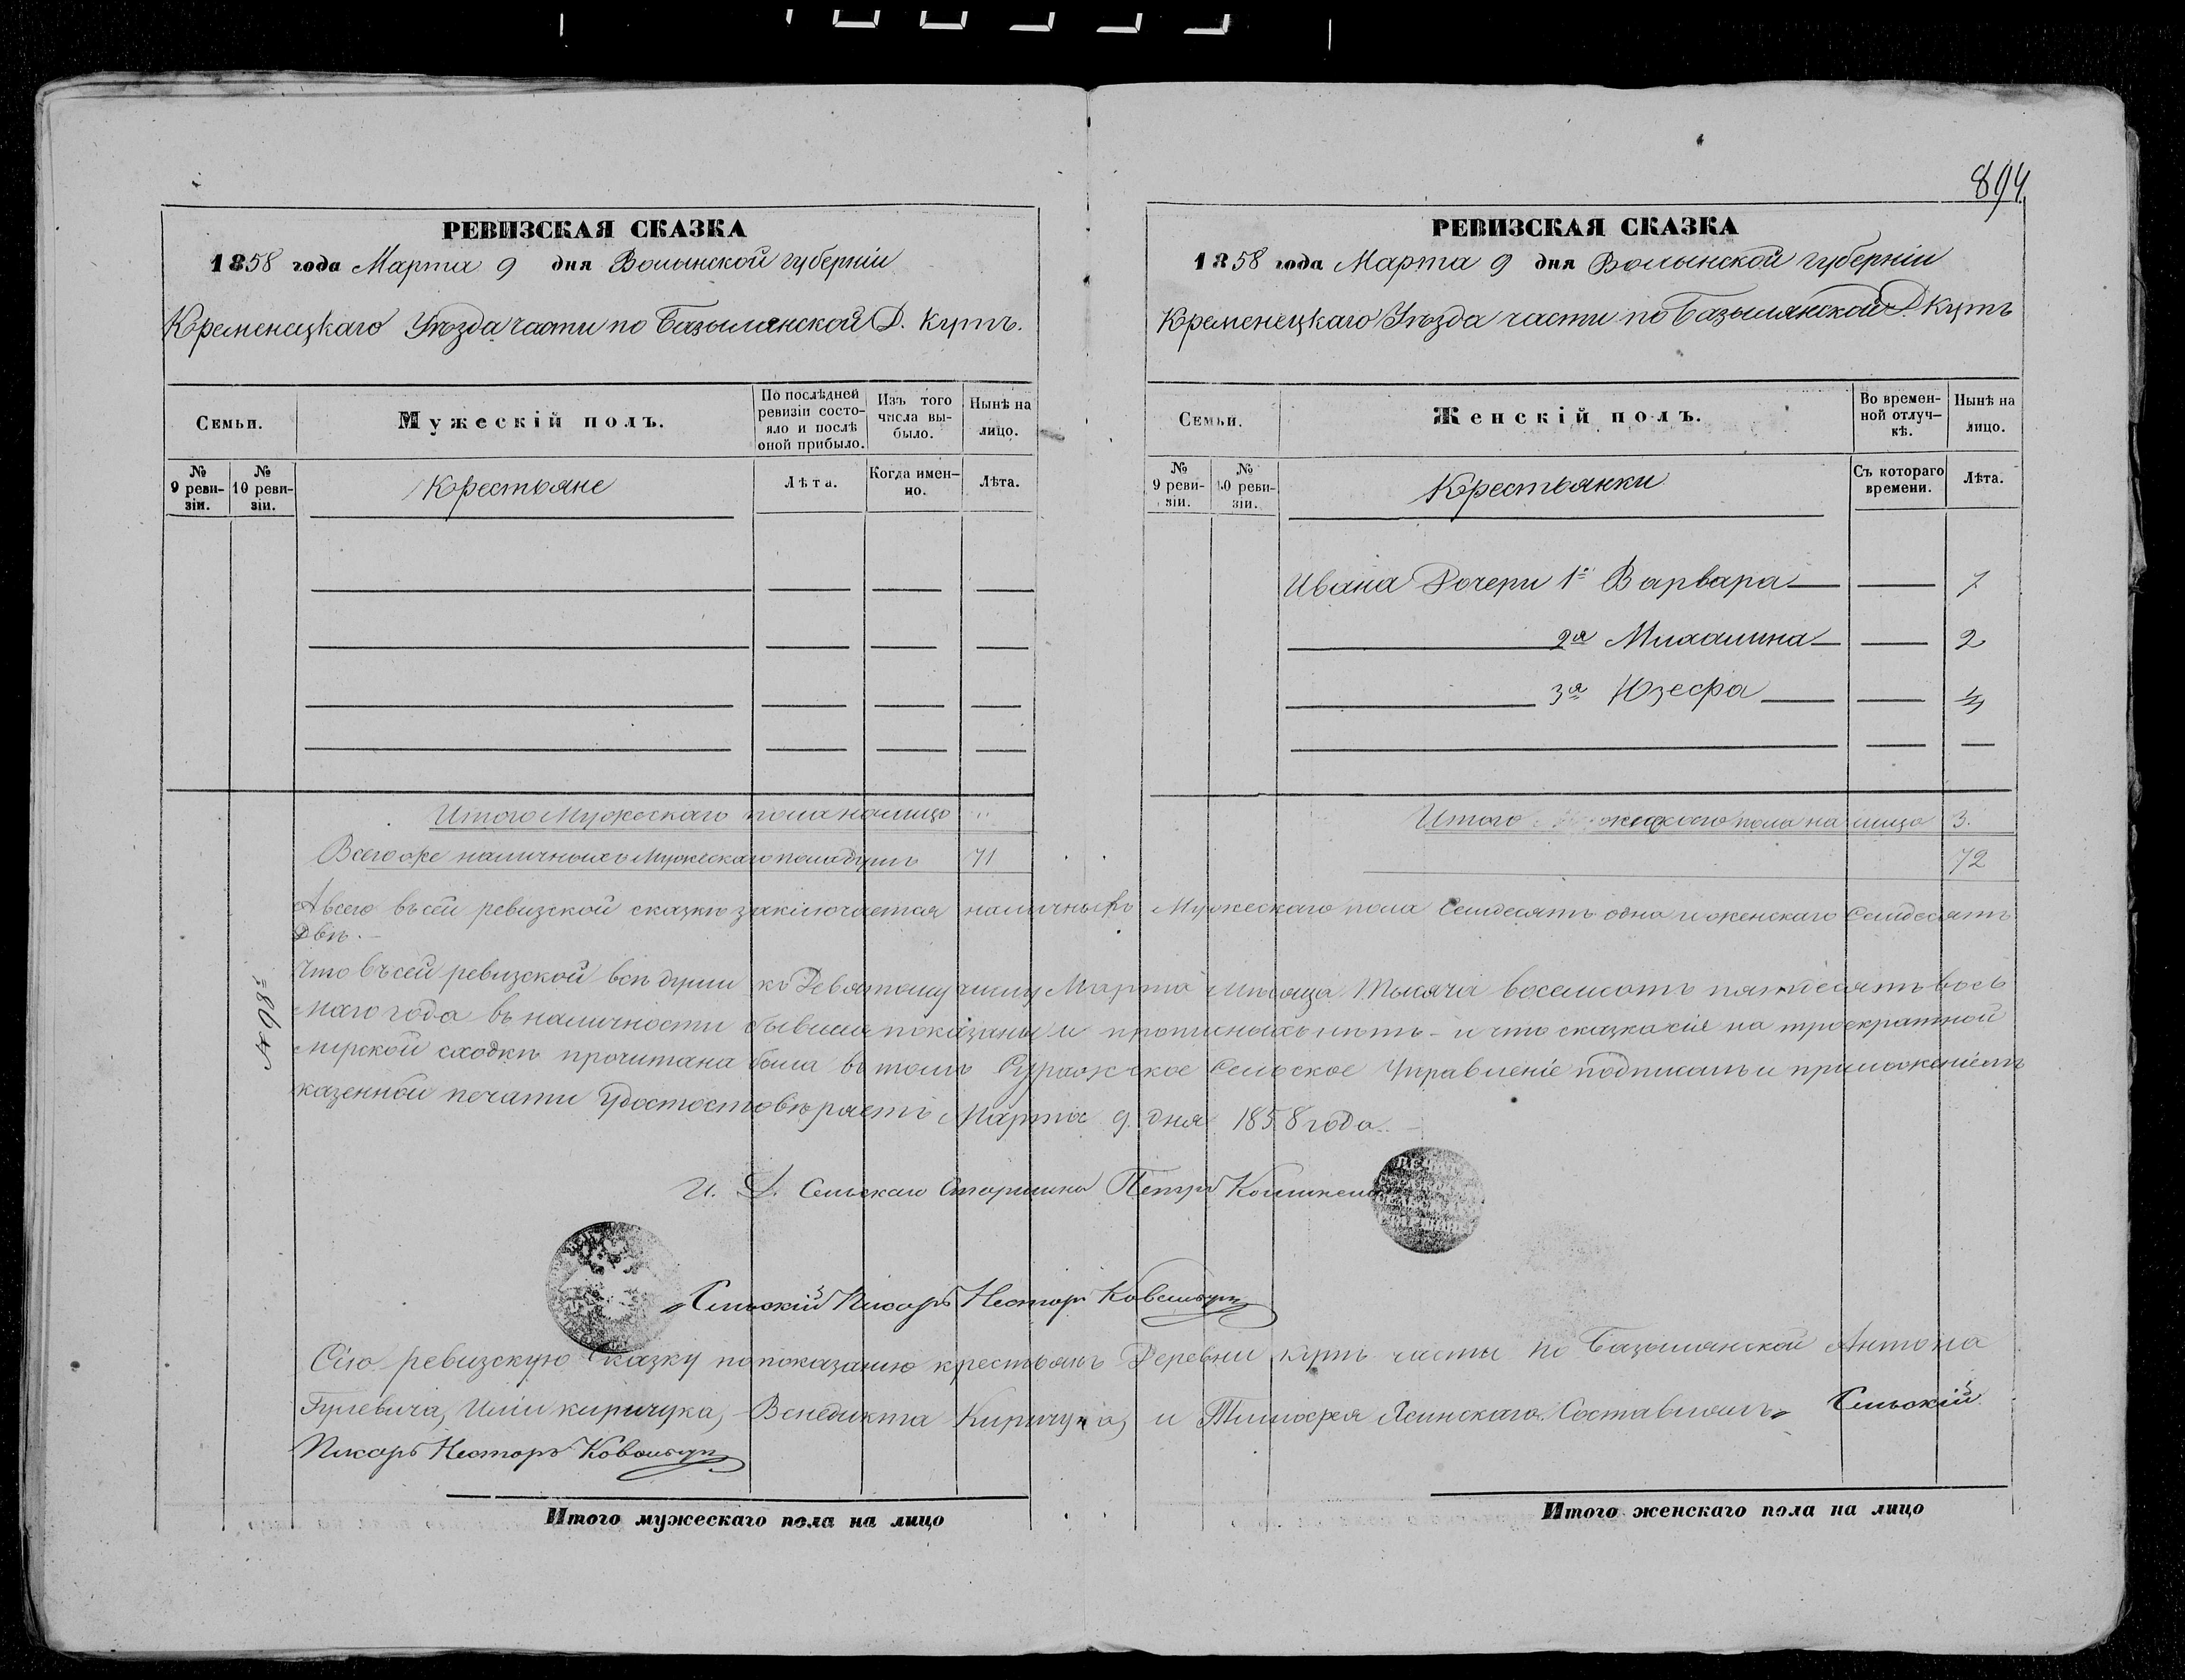 894
РЕВИЗСКАЯ СКАЗКА
1858 года Марта 9 дня Волынской губерніи
Кременецкаго Уѣзда части по Базылянской Д. Кутъ.
Семьи.
Мужескій полъ.
По послѣдней ревизіи состояло и послѣ оной прибыло.
Изъ того числа выбыло.
Нынѣ на лицо.
№ 9 ревизіи.
№ 10 ревизіи.
Крестьяне
Лѣта.
Когда именно.
Лѣта.
Итого Мужескаго пола налицо "
Всего же наличныхъ Мужескаго пола душъ 71
РЕВИЗСКАЯ СКАЗКА
1858 года Марта 9 дня Волынской губерніи
Кременецкаго Уѣзда части по Базылянской Д. Кутъ
Семьи.
Женскій полъ.
Во временной отлучкѣ.
Нынѣ на лицо.
№ 9 ревизіи.
№ 10 ревизіи.
Крестьянки
Съ котораго времени.
Лѣта.
Ивана Дочери 1я Варвара 7
2я Михалина 2
3я Юзефа
Итого женскаго пола на лицо 3.
72
А всего въ сей ревизской сказкѣ заключается наличныхъ Мужескаго пола Семдесятъ одна и женскаго Семдесятъ
двѣ.
Что въ сей ревизской всѣ души къ Девятому числу Марта Мѣсяца Тысяча восемсотъ пятдесятъ вось
маго года въ наличности бывшія показаны и прописныхъ нѣтъ - и что сказка сія на троекратной
мирской сходкѣ прочитана была въ томъ Суражское Сельское Управленіе подписомъ и приложеніемъ
казенной печати Удостостовѣряетъ Марта 9 дня 1858 года.
И. Д. Сельскаго Старшины Петръ
Сельскій Писарь Несторъ Ковальчук
Сію ревизскую сказку по показанію крестьянъ Деревни Кутъ части по Базылянской Антона
Гулевича, Иліи Киричука, Венедикта Киричука, и Тимофея Ясинскаго. Составилъ Сельскій
Писарь Несторъ Ковальчук
Итого мужескаго пола на лицо
Итого женскаго пола на лицо